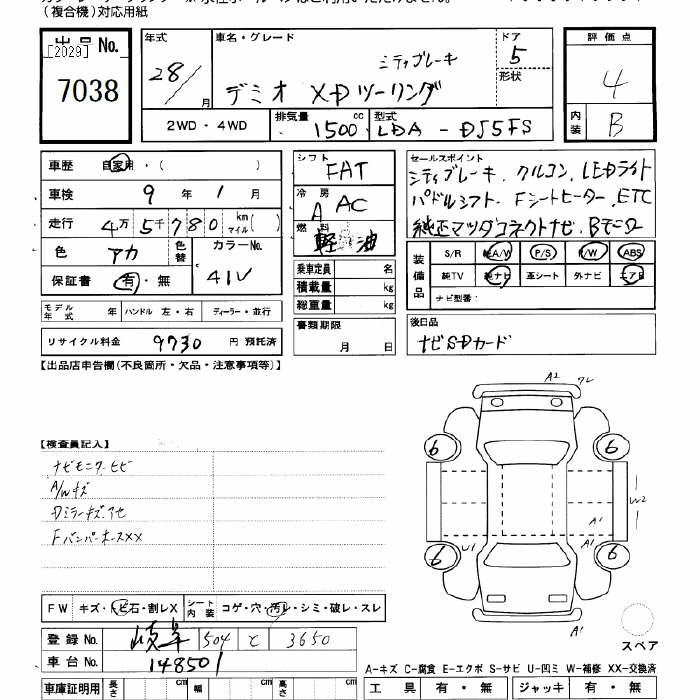 (複合機)対応用紙
出品No.
[2029]
7038
年式 28/ 月
車名・グレード
シティブレーキ
デミオ XDツーリング
ドア 5
形状
評価点 4
内装 B
2WD・4WD
排気量 1500 cc
型式 LDA-DJ5FS
車歴 自家用・( )
車検 9年 1月
走行 4万5千780 km マイル( )
色 アカ
色替
カラーNo. 41V
保証書 有・無
シフト FAT
冷房 A AC
燃料 軽油
乗車定員 名
積載量 kg
総重量 kg
書類期限
月 日
セールスポイント
シティブレーキ、クルコン、LEDライト
パドルシフト、Fシートヒーター、ETC
純正マツダコネクトナビ、Bモニター
装備品
S/R 純A/W P/S P/W ABS
純TV 純ナビ 革シート 外ナビ エアB
ナビ型番:
後日品
ナビSDカード
モデル年式 年 ハンドル 左・右 ディーラー・並行
リサイクル料金 9730 円 預託済
【出品店申告欄(不良箇所・欠品・注意事項等)】
【検査員記入】
ナビモニターヒビ
A/Wキズ
Dミラーキズアセ
FバンパーホースXX
A2
6
6
W2
A1
U1
A1
6
6
A1
スペア
FW キズ・トビ石・割レX
シート内装 コゲ・穴・汚レ・シミ・破レ・スレ
登録No. 岐阜 504 と 3650
車台No. 148501
A-キズ C-腐食 E-エクボ S-サビ U-凹ミ W-補修 XX-交換済
車庫証明用 長さ cm 幅 cm 高さ cm
工具 有・無 ジャッキ 有・無